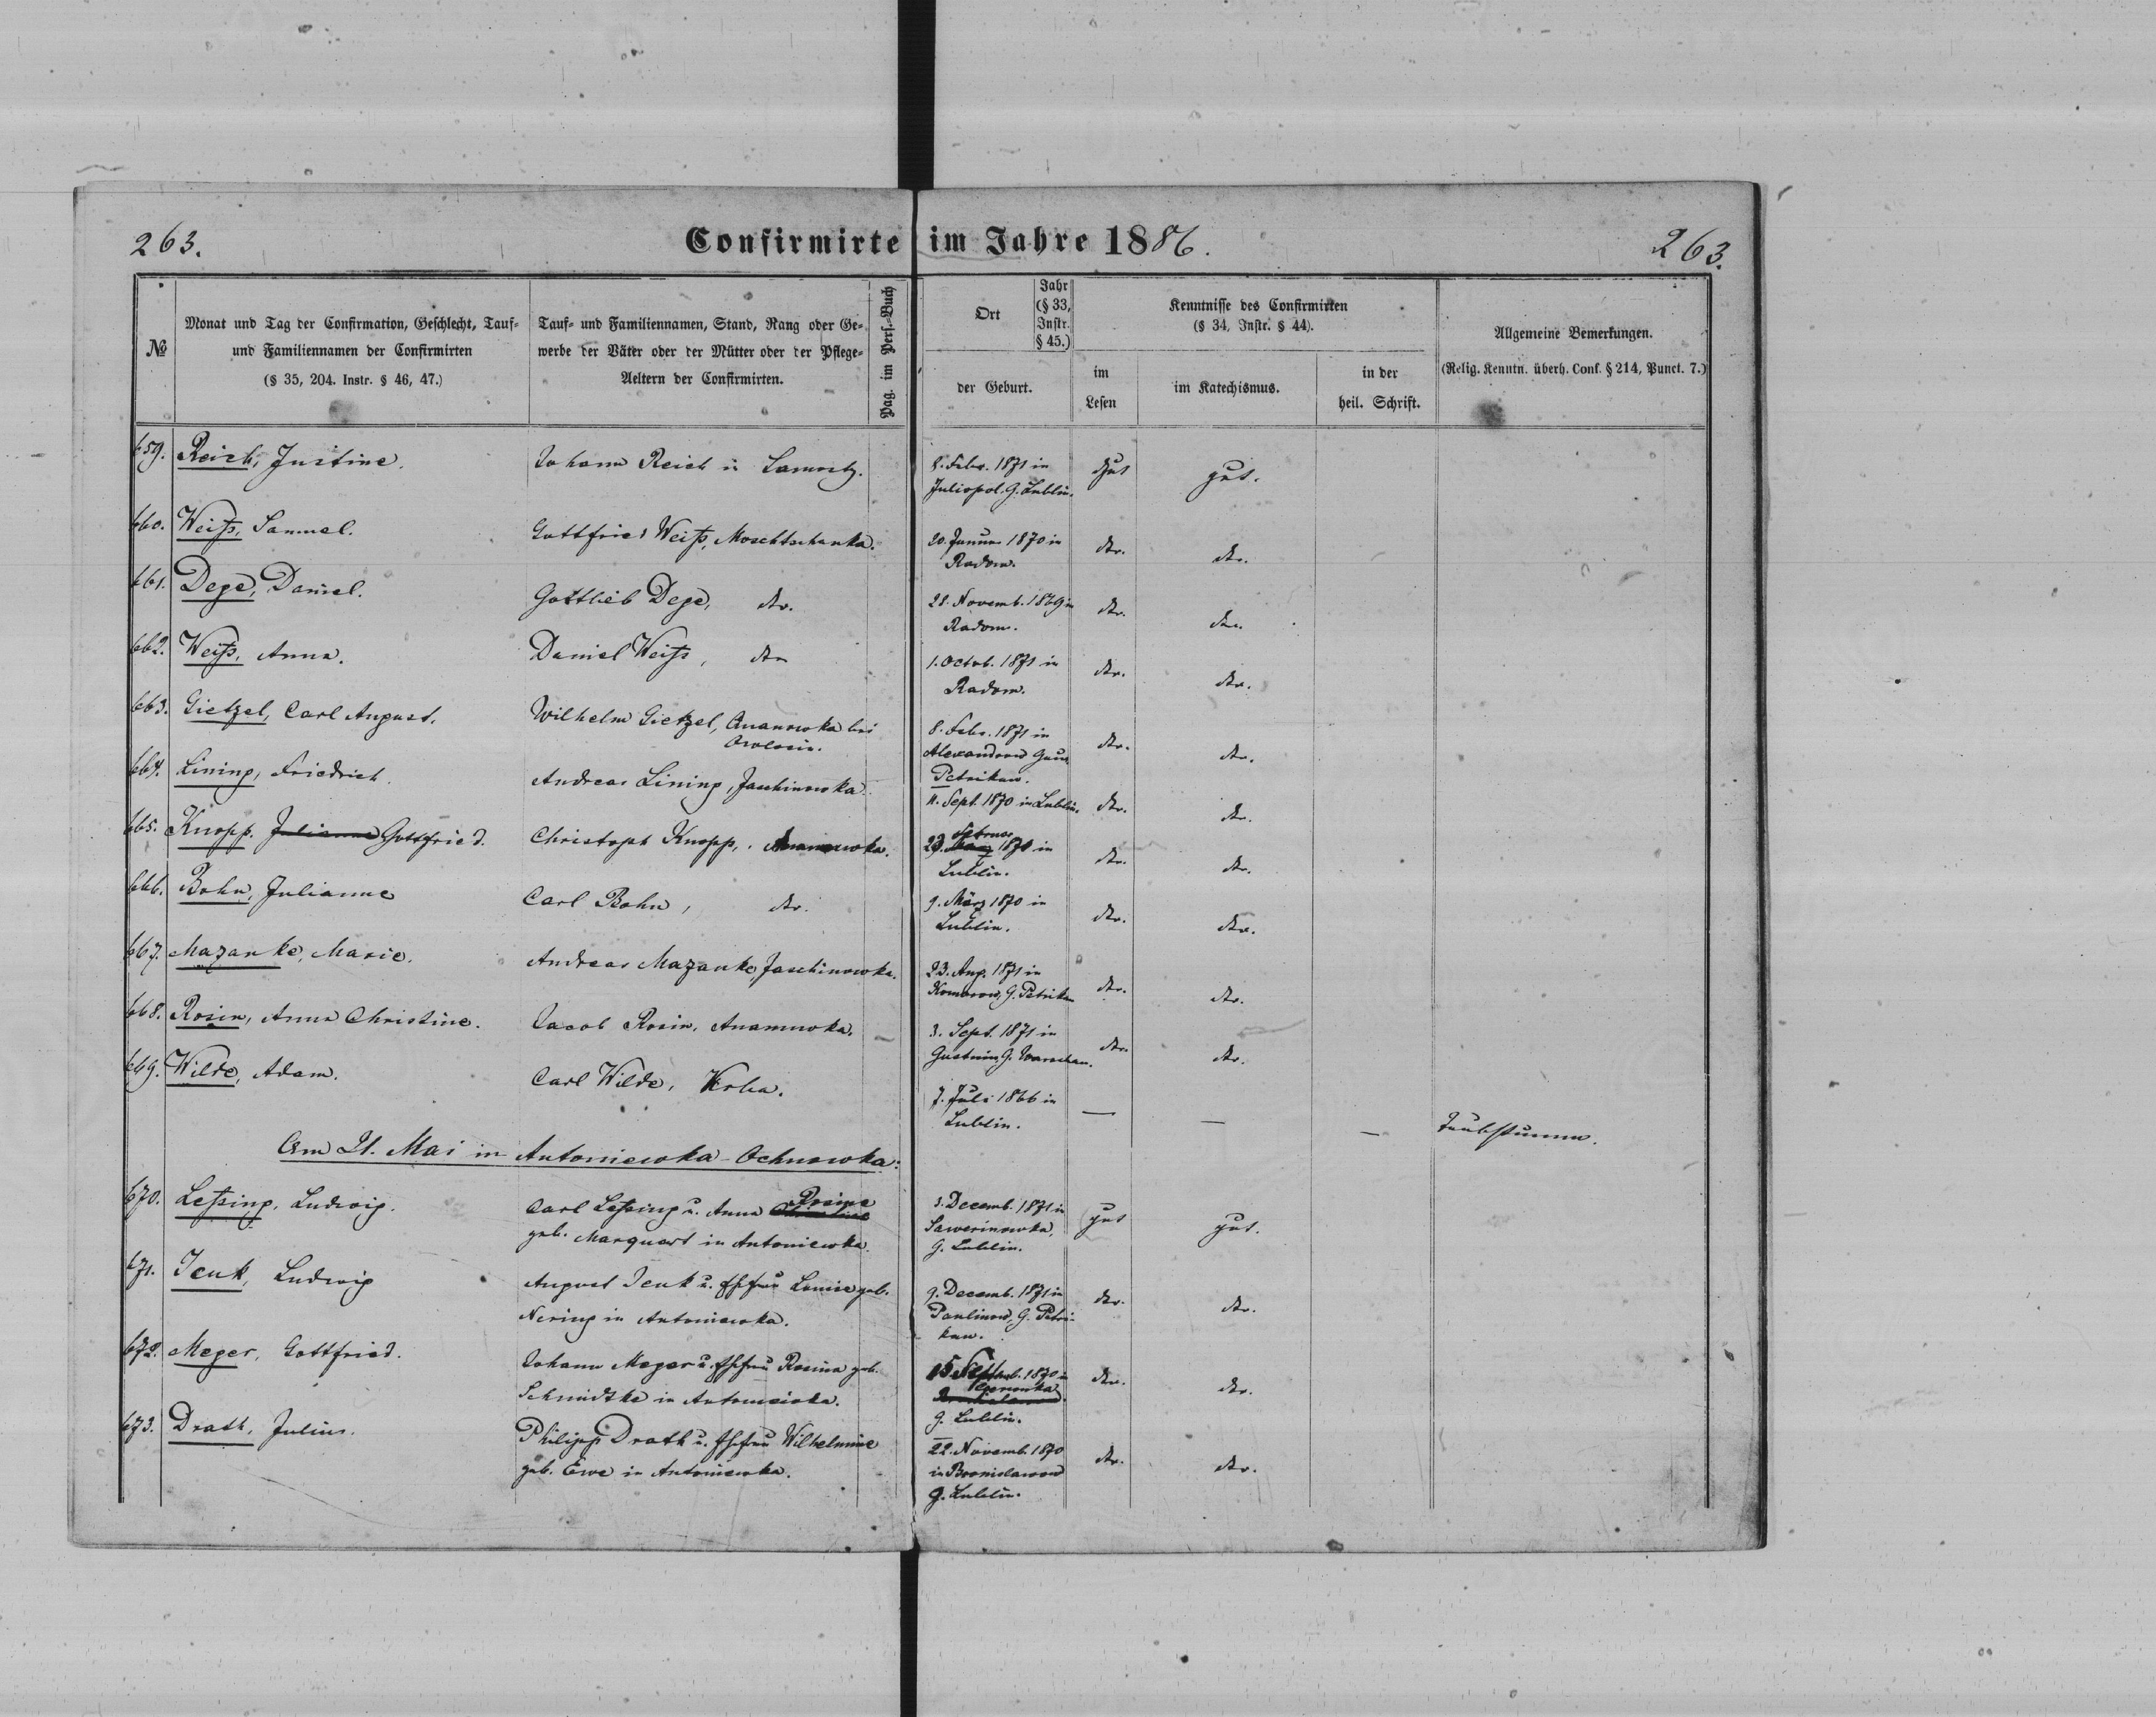 263.
Confirmirte im Jahre 1886.
263.
№
Monat und Tag der Confirmation, Geschlecht, Tauf-
und Familiennamen der Confirmirten
(§ 35, 204. Instr. § 46, 47.)
Tauf- und Familiennamen, Stand, Rang oder Ge-
werbe der Väter oder der Mütter oder der Pflege-
Aeltern der Confirmirten.
Pag. im Pers.-Buch
Ort
Jahr
(§ 33,
Instr.
§ 45.)
der Geburt.
Kenntnisse des Confirmirten
(§ 34, Instr. § 44).
im
Lesen
im Katechismus.
in der
heil. Schrift.
Allgemeine Bemerkungen.
(Relig. Kenntn. überh. Conf. § 214, Punct. 7.)
659. Reich, Justine. Johann Reich in 8. Febr. 1871 in gut gut.
Juliopol. G. Lublin.
660. Weiß, Samuel. Gottfried Weiß, Moschtschanka. 20. Januar 1870 in dto. dto.
Radom.
661. Dege, Daniel. Gottlieb Dege, dto. 28. Novemb. 1869 in dto. dto.
Radom.
662. Weiß, Anna. Daniel Weiß, dto 1. Octob. 1871 in dto. dto.
Radom.
663. Gietzel, Carl August. Wilhelm Gietzel, Ananowka bei 8. Febr. 1871 in dto. dto.
Alexandrow Gouv.
Petrikau.
664. Lining, Friedrich. Andreas Lining, Jaschinowka. 11. Sept. 1870 in Lublin. dto. dto.
665. Knopp. Julianne Gottfried. Christoph Knopp, Ananowka. 23. Februar März 1871 in dto. dto.
Lublin.
666. Bohn, Julianne Carl Bohn, dto. 9. März 1870 in dto. dto.
Lublin.
667. Mazanke, Marie. Andreas Mazanke, Jaschinowka. 23. Aug. 1871 in dto. dto.
Komorow, G. Petrikau
668. Rosin, Anna Christine. Jacob Rosin, Ananowka. 3. Sept. 1871 in dto. dto.
G. Warschau.
669. Wilde, Adam. Carl Wilde, Werba. 7. Juli 1866 in — — — Taubstumm.
Lublin.
Am 21. Mai in Antoniewka-Ochnowka:
670. Leßing, Ludwig. Carl Leßing u. Anna Rosine 3. Decemb. 1871 in gut gut.
geb. Marquart in Antoniewka. Sawerinowka,
G. Lublin.
671. Jenk, Ludwig August Jenk u. Ehefrau Louise geb. 9. Decemb. 1871 in dto. dto.
Nering in Antoniewka. Paulinow, G. Petri-
kau.
672. Meger, Gottfried. Johann Meger u. Ehefrau Rosina geb. 15 Septemb. 1870 in dto. dto.
Schmidtke in Antoniewka.
G. Lublin.
673. Drath, Julius. Philipp Drath u. Ehefrau Wilhelmine 22. Novemb. 1870 dto. dto.
geb. Ewe in Antoniewka. in Bronislawow
G. Lublin.